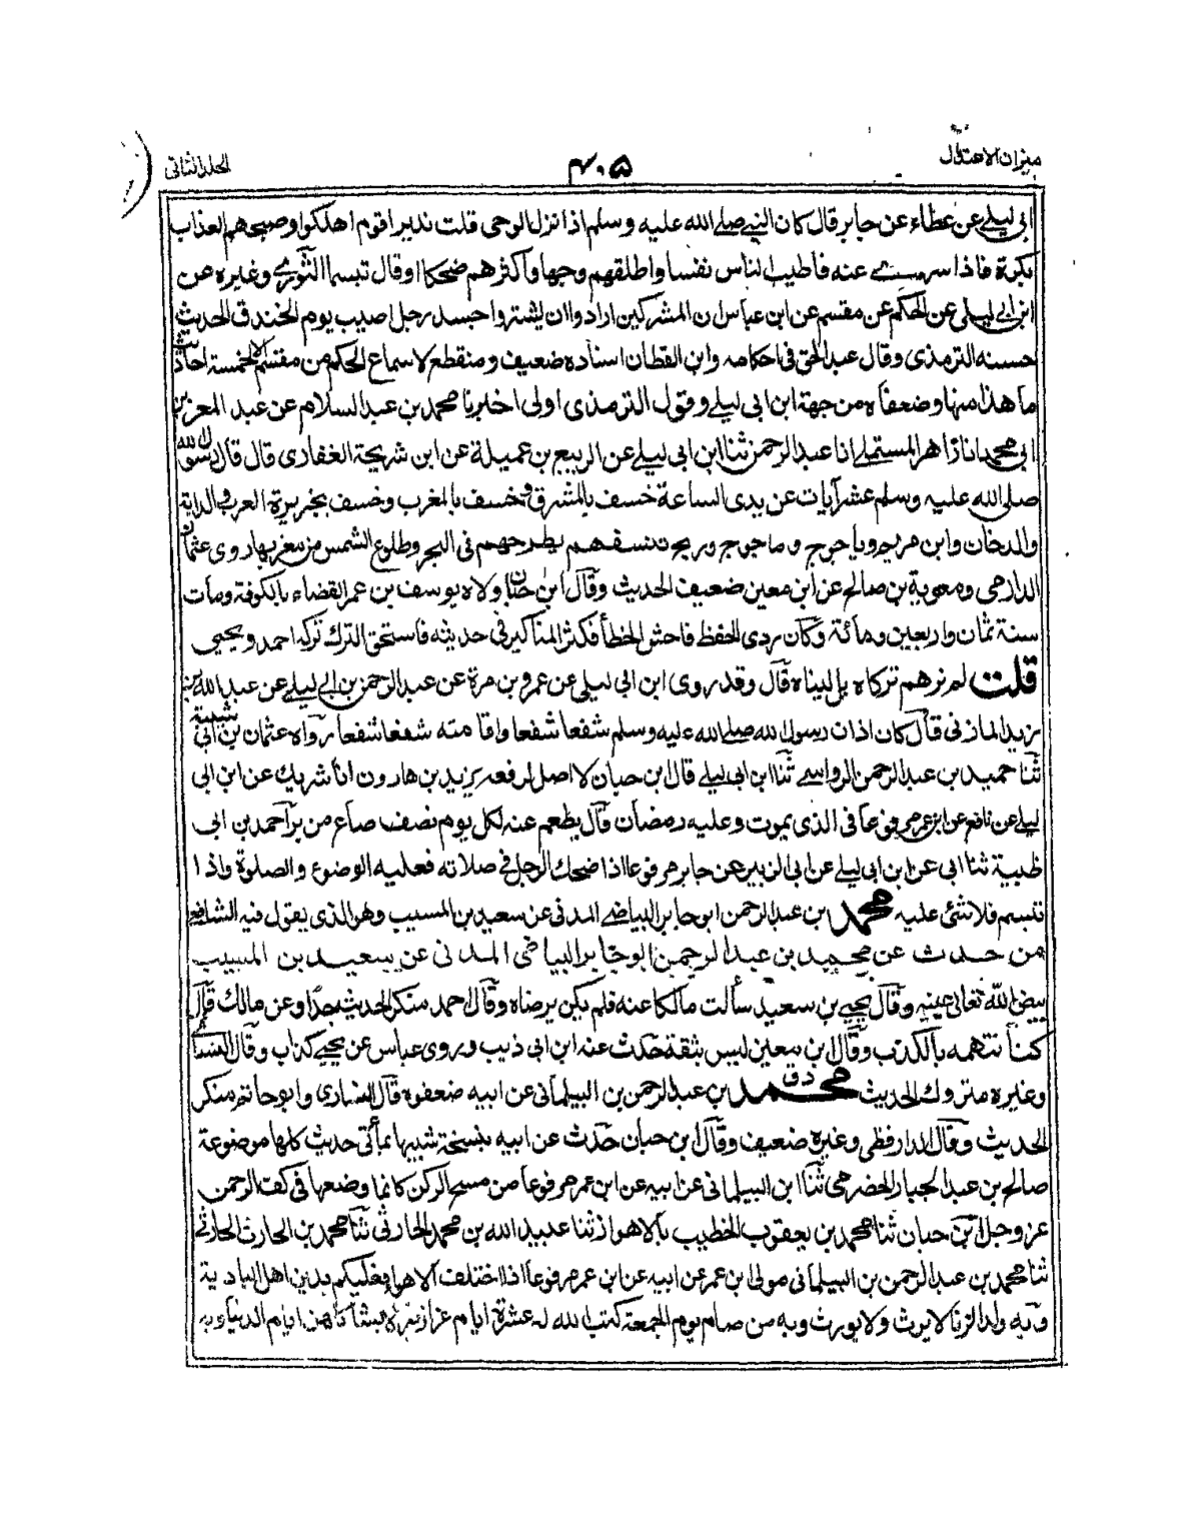 ميزان الاعتدال
٤٠٥
الجلد الثانی
ابی لیلے عن عطاء عن جابر قال کان النبے صلے الله علیه وسلم اذا نزل الوحی قلت نذیر اقوم اهلکوا وصبحهم العذاب
بکرة فاذا سرے عنه فاطیب الناس نفسا واطلقهم وجها واکثرهم ضحکا او قال تبسما الثورے وغیره عن
ابن ابی لیلی عن الحکم عن مقسم عن ابن عباس ان المشرکین ارادوا ان یشتروا جسد رجل اصیب یوم الخندق الحدیث
حسنه الترمذی وقال عبد الحق فی احکامه وابن القطان اسناده ضعیف ومنقطع لا سماع الحکم من مقسم الا لخمسة احادیث
ما هذا منها وضعفاه من جهة ابن ابی لیلے وقول الترمذی اولی اخبرنا محمد بن عبد السلام عن عبد المعز بن
ابی محمد انا زاهر المستملے انا عبد الرحمن ثنا ابن ابی لیلے عن الربیع بن عمیلة عن ابن شریحة الغفاری قال قال رسول الله
صلی الله علیه وسلم عشر آیات عن یدی الساعة خسف بالمشرق وخسف بالمغرب وخسف بجزیرة العرب والدابة
والدخان وابن مریم ویاجوج وماجوج وریح تنسفهم یطرحهم فی البحر وطلوع الشمس من مغربها روی عثمان
الدارمی ومعویة بن صالح عن ابن معین ضعیف الحدیث وقال ابن حبان ولاه یوسف بن عمر القضاء بالکوفة ومات
سنة ثمان واربعین ومائة وکان ردی الحفظ فاحش الخطأ فکثر المناکیر فی حدیثه فاستحق الترک ترکه احمد ویحیی
قلت لم نرهم ترکاه بل لیناه قال وقد روی ابن ابی لیلی عن عمرو بن مرة عن عبد الرحمن بن ابی لیلے عن عبد الله بن
زید المازنی قال کان اذان رسول الله صلے الله علیه وسلم شفعا شفعا واقامته شفعا شفعا رواه عثمان بن ابی شیبة
ثنا حمید بن عبد الرحمن الرواسے ثنا ابن ابی لیلے قال ابن حبان لا اصل لرفعه یزید بن هارون انا شریک عن ابن ابی
لیلے عن نافع عن ابن عمر مرفوعا فی الذی یموت وعلیه رمضان قال یطعم عنه لکل یوم نصف صاع من بر احمد بن ابی
ظبیة ثنا ابی عن ابن ابی لیلے عن ابی الزبیر عن جابر مرفوعا اذا ضحک الرجل فی صلاته فعلیه الوضوء والصلوة واذا
تبسم فلا شئ علیه محمد بن عبد الرحمن ابو جابر البیاضے المدنی عن سعید بن المسیب وهو الذی یقول فیه الشافعے
من حدث عن محمد بن عبد الرحمن ابو جابر البیاضی المدنی عن سعید بن المسیب
بیض الله تعالی عینیه وقال یحیے بن سعید سألت مالکا عنه فلم یکن یرضاه وقال احمد منکر الحدیث جدا وعن مالک قال
کنا نتهمه بالکذب وقال ابن معین لیس بثقة حدث عنه ابن ابی ذیب وروی عباس عن یحیے کذاب وقال النسائی
وغیره متروک الحدیث محمد دق بن عبد الرحمن بن البیلمانی عن ابیه ضعفوه قال البخاری وابو حاتم منکر
الحدیث وقال الدارقطنی وغیره ضعیف وقال ابن حبان حدث عن ابیه بنسخة شبیها بمأتی حدیث کلها موضوعة
صالح بن عبد الجبار الحضرمی ثنا ابن البیلمانی عن ابیه عن ابن عمر مرفوعا من مسح الرکن کانما وضعها فی کف الرحمن
عز وجل ابن حبان ثنا محمد بن یعقوب الخطیب بالاهواز ثنا عبید الله بن محمد الحارثی ثنا محمد بن الحارث الحارثے
ثنا محمد بن عبد الرحمن بن البیلمانی مولی ابن عمر عن ابیه عن ابن عمر مرفوعا اذا اختلف الاهواء فعلیکم بدین اهل البادیة
وبه ولد الزنا لا یرث ولا یورث وبه من صام یوم الجمعة کتب الله له عشرة ایام من ایام الدنیا وبه